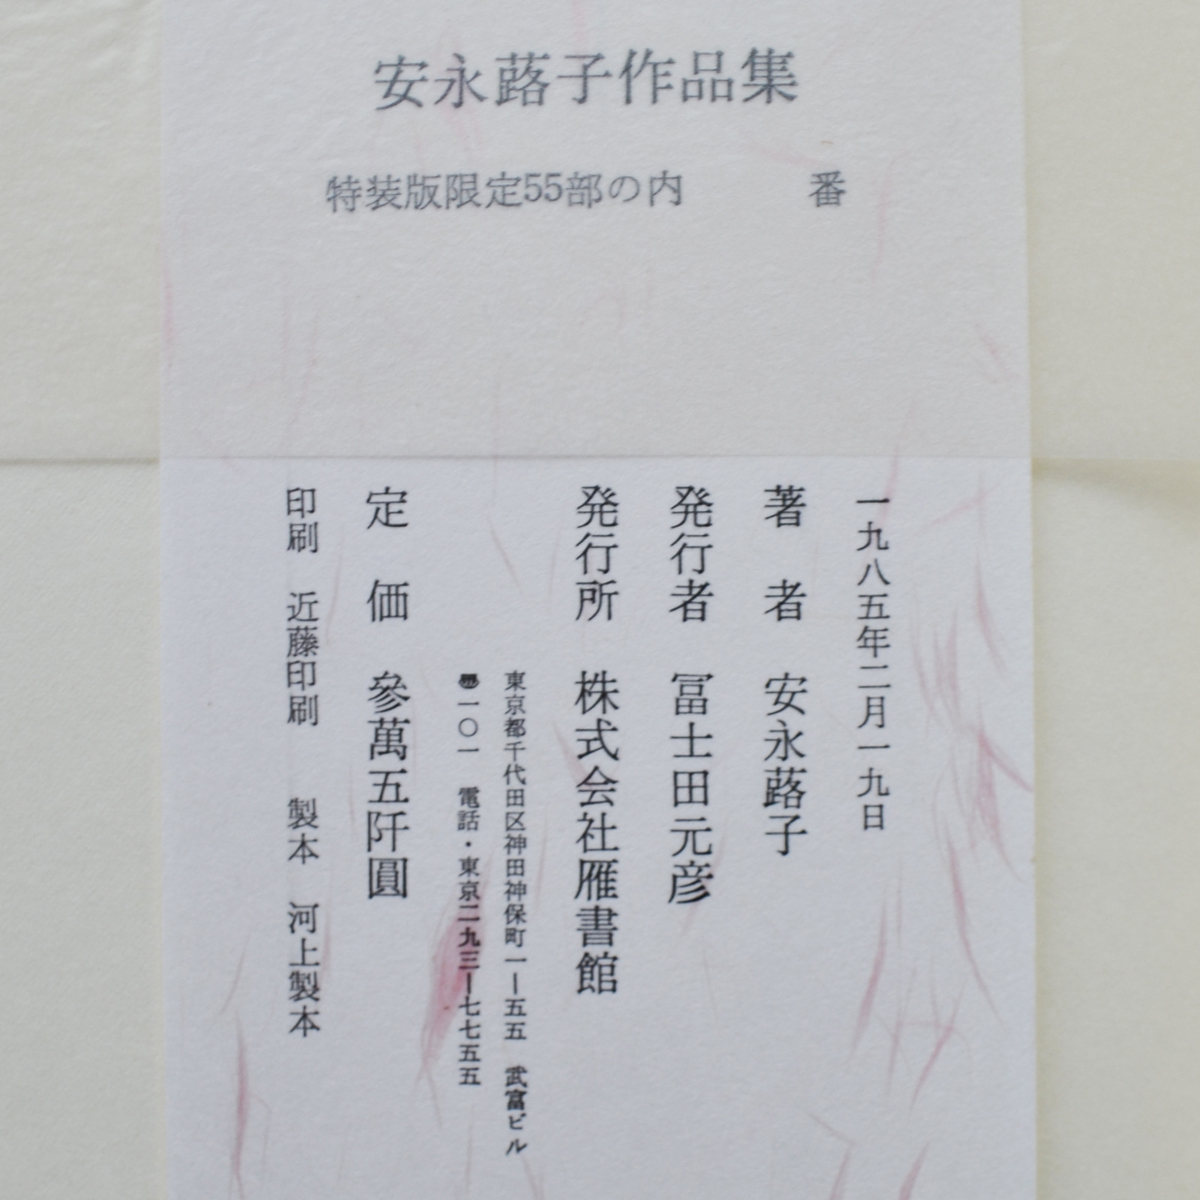 安永蕗子作品集
特装版限定55部の内　　　番
一九八五年二月一九日
著　者　安永蕗子
発行者　冨士田元彦
発行所　株式会社雁書館
東京都千代田区神田神保町一―五五　武富ビル
〒一〇一　電話・東京二九三―七七五五
定　価　參萬五阡圓
印刷　近藤印刷　　製本　河上製本